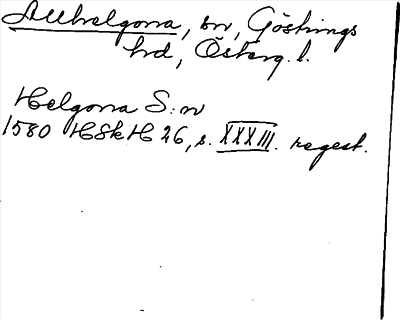 Allhelgona, sn, Göstrings
hd, Österg. l.
Helgona S:n
1580 HSkH 26, s. XXXIII. regest.